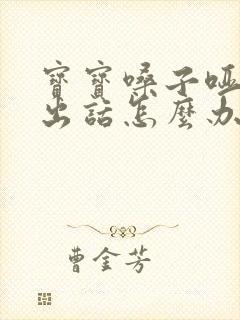 寶寶嗓子啞
出話怎麼办
曹金芳